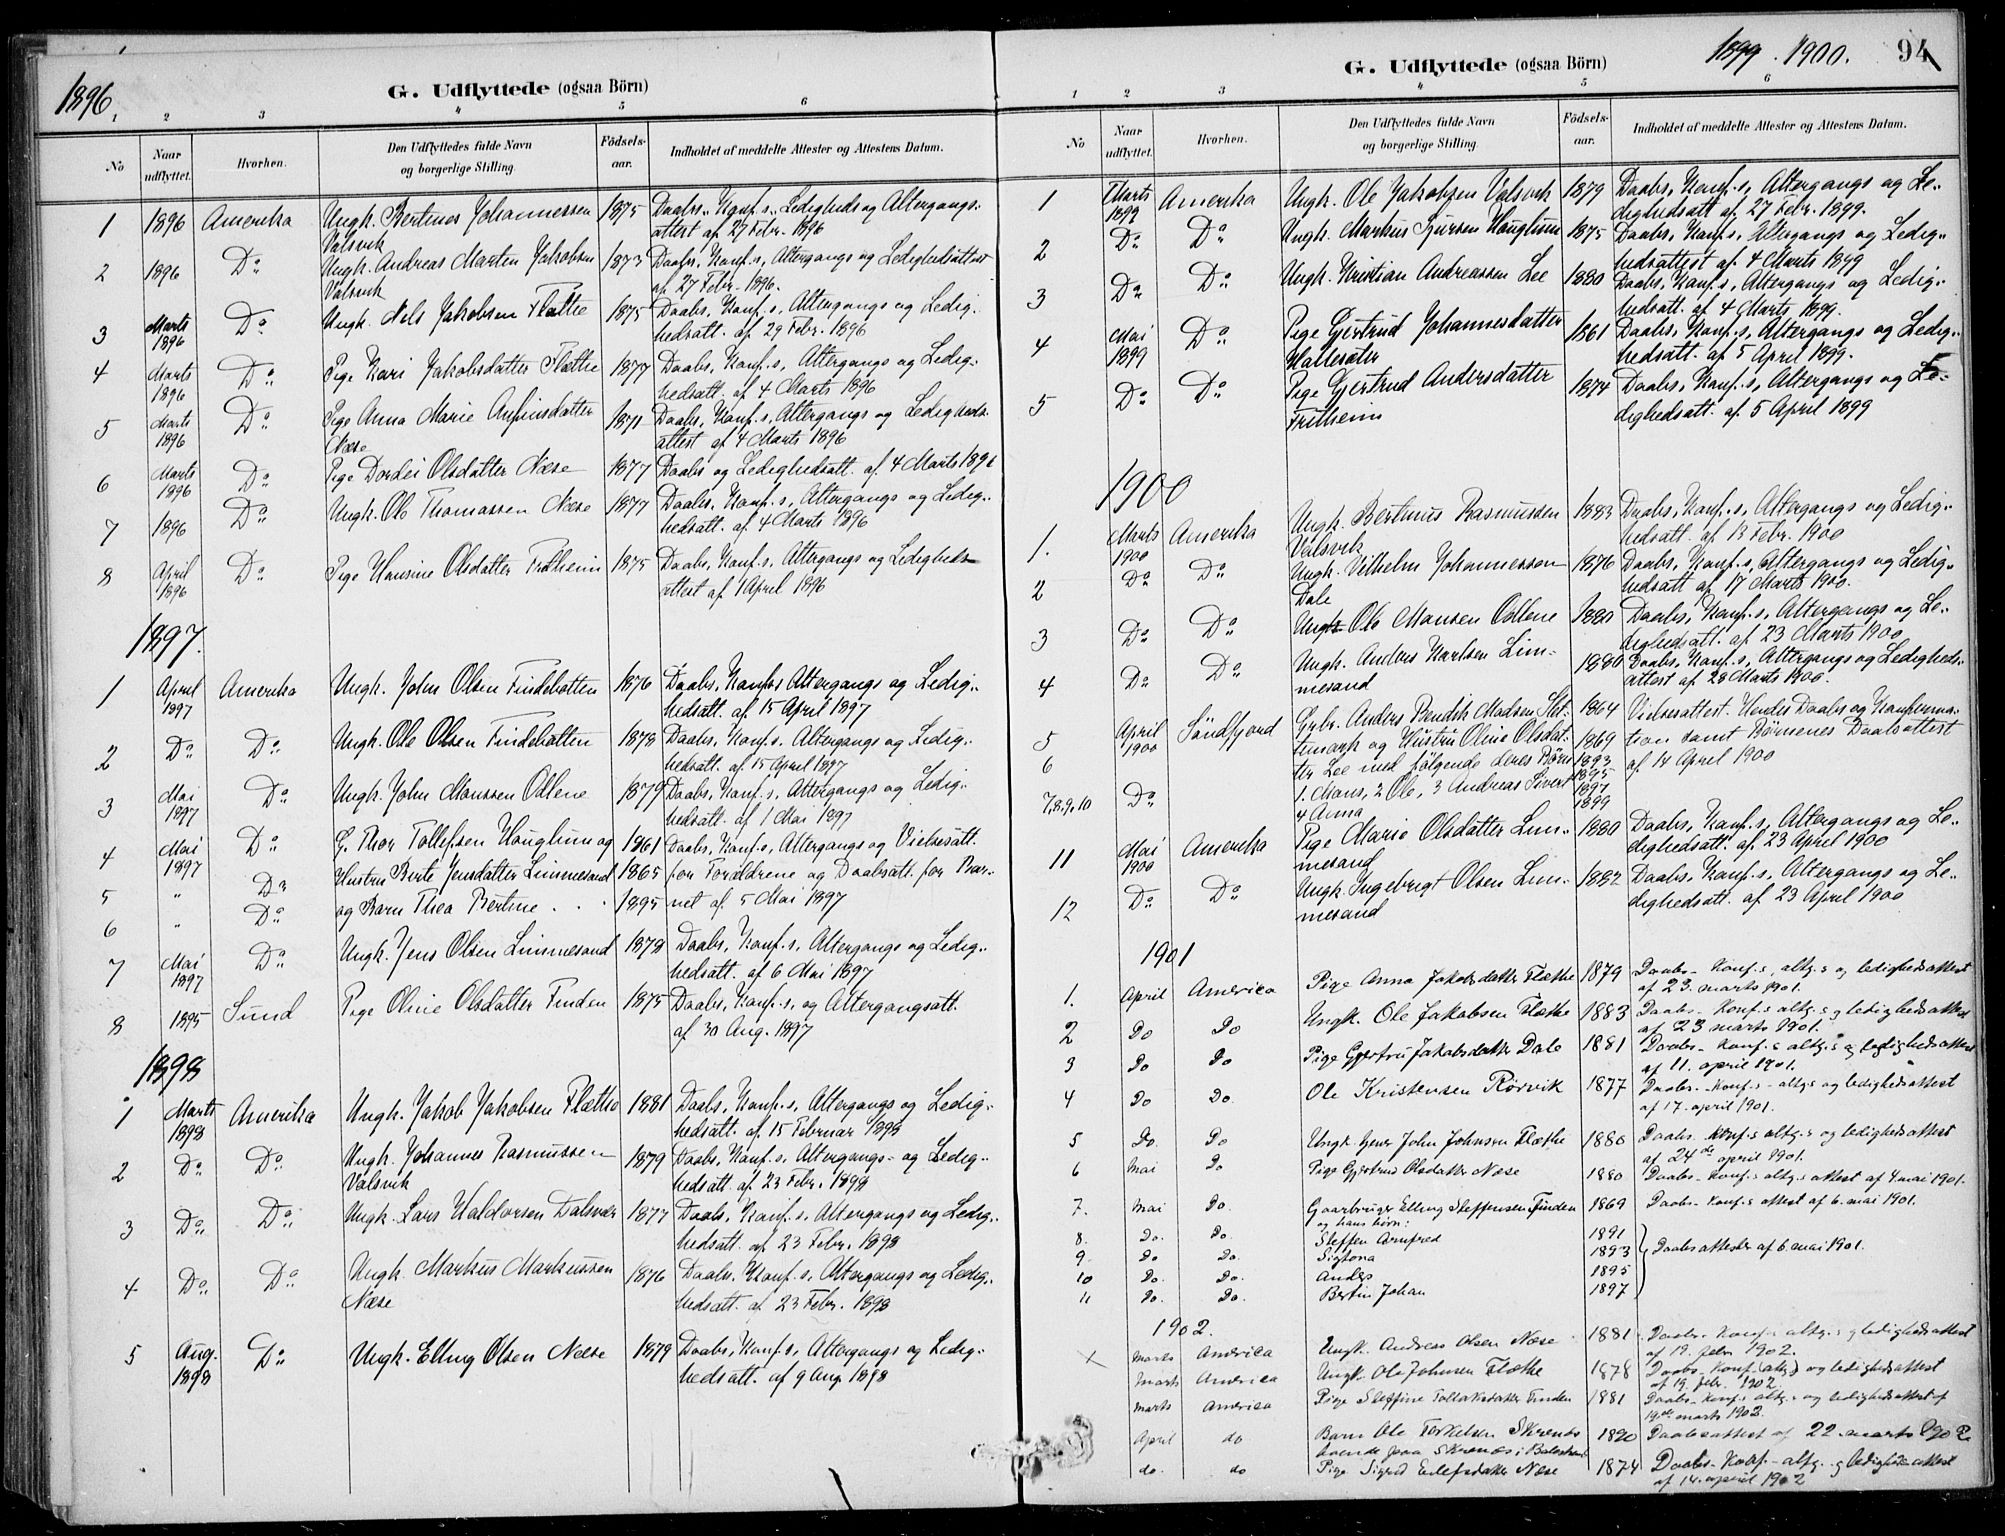 1896.
G. Udflyttede (ogsaa Börn)
1 2 3 4 5 6
No
Naar udflyttet.
Hvorhen.
Den Udflyttedes fulde Navn og borgerlige Stilling.
Födsels-aar.
Indholdet af meddelte Attester og Attestens Datum.
1 1896 Amerika Ungk. Bertines Johannessen 1875 Daabs, Konf.s, Ledigheds og Altergangs-
Valsvik attest af 27 Febr. 1896
2 1896 Do Ungk. Andreas Marten Jakobsen 1873 Daabs, Konf.s, Altergangs og Ledighedsattest
Valsvik af 27 Febr. 1896.
3 Marts 1896 Do Ungk. Nils Jakobsen Flæthe 1875 Daabs, Konf.s, Altergangs og Ledig-
hedsatt. af 29 Febr. 1896
4 Marts 1896 Do Pige Kari Jakobsdatter Flæthe 1877 Daabs, Konf.s, Altergangs og Ledig-
hedsatt. af 4 Marts 1896
5 Marts 1896 Do Pige Anna Marie Anfinsdatter 1871 Daabs, Konf.s, Altergangs og Ledigheds-
Næse attest af 4 Marts 1896
6 Marts 1896 Do Pige Dordei Olsdatter Næse 1877 Daabs og Ledighedsatt. af 4 Marts 1896
7 1896 Do Ungk. Ole Thomassen Næse 1877 Daabs, Konf.s, Altergangs og Ledig-
hedsatt. af 4 Marts 1896
8 April 1896 Do Pige Hansine Olsdatter Fretheim 1875 Daabs, Konf.s, Altergangs og Ledigheds-
attest af 1 April 1896
1897.
1 April 1897 Amerika Ungk. John Olsen Findebotten 1876 Daabs, Konf.s Altergangs og Ledig-
hedsatt. af 15 April 1897
2 Do Do Ungk. Ole Olsen Findebotten 1878 Daabs, Konf.s, Altergangs og Ledig-
hedsatt. af 15 April 1897
3 Mai 1897 Do Ungk. John Monssen Ødlene 1879 Daabs, Konf.s, Altergangs og Ledig-
hedsatt. af 1 Mai 1897
4 Mai 1897 Do G. Thor Tollefsen Houglum og 1861 Daabs, Konf.s, Altergangs og Vielsesatt.
5 " Do Hustru Berte Jensdatter Linmesand 1865 for Forældrene og Daabsatt. for Bar-
6 " Do og Barn Thea Bertine . . . 1895 net af 5 Mai 1897
7 Mai 1897 Do Ungk. Jens Olsen Linmesand 1878 Daabs, Konf.s, Altergangs og Ledig-
hedsatt. af 6 Mai 1897
8 1895 Sund Pige Oline Olsdatter Finden 1875 Daabs, Konf.s, og Altergangsatt.
af 30 Aug. 1897
1898
1 Marts 1898 Amerika Ungk. Jakob Jakobsen Flæthe 1881 Daabs, Konf.s, Altergangs og Ledig-
hedsatt. af 15 Februar 1898
2 Do Do Ungk. Johannes Rasmussen 1879 Daabs, Konf.s, Altergangs- og Ledig-
Valsvik hedsatt. af 23 Febr. 1898
3 Do Do Ungk. Lars Haldorsen Dalsvær 1877 Daabs, Konf.s, Altergangs og Ledig-
hedsatt. af 23 Febr. 1898
4 Do Do Ungk. Markus Markussen 1876 Daabs, Konf.s, Altergangs og Ledig-
Næse hedsatt. af 23 Febr. 1898
5 Aug. 1898 Do Ungk. Elling Olsen Næse 1879 Daabs, Konf.s, Altergangs og Ledig-
hedsatt. af 9 Aug 1898
G. Udflyttede (ogsaa Börn) 1899. 1900. 94
1 2 3 4 5 6
No
Naar udflyttet.
Hvorhen.
Den Udflyttedes fulde Navn og borgerlige Stilling.
Födsels-aar.
Indholdet af meddelte Attester og Attestens Datum.
1 Marts 1899 Amerika Ungk. Ole Jakobsen Valsvik 1879 Daabs, Konf.s, Altergangs og Le-
dighedsatt af 27 Febr. 1899.
2 Do Do Ungk. Markus Sjursen Houglum 1875 Daabs, Konf.s, Altergangs og Ledig-
hedsattest af 4 Marts 1899
3 Do Do Ungk. Kristian Andreassen Lee 1880 Daabs, Konf.s, Altergangs og Ledig-
hedsatt. af 4 Marts 1899.
4 Mai 1899 Do Pige Gjertrud Johannesdatter 1861 Daabs, Konf.s, Altergangs og Ledig-
Hallesæter hedsatt. af 5 April 1899.
5 Do Do Pige Gjertrud Andersdatter 1874 Daabs, Konf.s, Altergangs og Le-
Fretheim dighedsatt. af 5 April 1899
1900
1. Marts 1900 Amerika Ungk. Bertinus Rasmussen 1883 Daabs, Konf.s, Altergangs og Ledig-
Valsvik hedsatt. af 13 Febr. 1900
2 Do Do Ungk. Vilhelm Johannessen 1876 Daabs, Konf.s, Altergangs og Ledig-
Dale hedsatt af 17 Marts 1900.
3 Do Do Ungk Ole Monsen Ødlene 1880 Daabs, Konf.s, Altergangs og Le-
dighedsatt. af 23 Marts 1900
4 Do Do Ungk. Anders Karlsen Lin- 1880 Daabs, Konf.s, Altergangs og Ledigheds-
mesand attest af 28 Marts 1900.
5 April 1900 Söndfjord Grbr. Anders Bendik Madsen Slet- 1864 Vielsesattest. Hendes Daabs og Konfirma-
6 temark og Hustru Oline Olsdat- 1869 tion samt Børnenes Daabsattest
ter Lee med følgende deres Börn 1893 af 14 April 1900
7,8,9,10 Do 1. Mons, 2 Ole, 3 Andreas Sivert 1895 1897
4 Anna 1899
11 Mai 1900 Amerika Pige Marie Olsdatter Lin- 1880 Daabs, Konf.s, Altergangs og Le-
mesand dighedsatt. af 23 April 1900
12 Do Do Ungk Ingebrigt Olsen Lin- 1882 Daabs, Konf.s, Altergangs og Le-
mesand dighedsatt. af 23 April 1900
1901
1. April America Pige Anna Jakobsdatter Flæthe 1879 Daabs- Konf.s, altg.s og ledighedsattest
af 23. marts 1901.
2 Do Do Ungk. Ole Jakobsen Flæthe 1883 Daabs- Konf.s altg.s og ledighedsattest
af 23 marts 1901.
3 Do Do Pige Gjertru Jakobsdatter Dale 1881 Daabs- Konf.s altg.s og ledighedsattest
af 11. april 1901.
4 Do Do. Ole Kristensen Rørvik 1877 Daabs- Konf.s- altg.s og ledighedsattest
af 17. april 1901.
5 Do. Do Ungk. John Johnsen Flæthe 1880 Daabs- Konf.s altg.s og ledighedsattest
af 24de april 1901.
6 Mai Do Pige Gjertrud Olsdatter Næse 1880 Daabs- Konf.s altg.s attest af 4. mai 1901.
7. Mai Do. Gaardbruger Elling Steffensen Finden 1869 Daabs- Konf.s attest af 6. mai 1901.
og hans börn:
8. Do. Do. Steffen Arnfred 1891
9. Do Do. Sigtona 1893 Daabsattester af 6. mai 1901.
10 Do. Do. Anders 1895
11 Do. Do. Bertin Johan 1897
1902.
x Marts America Ungk. Andreas Olsen Næse 1881 Daabs- Konf.s altg.s og ledighedsattest
af 19. febr 1902.
Marts America Ungk. Ole Johnsen Flæthe 1878 Daabs- Konf (altg.) og ledighedsattest
af 19. febr. 1902.
Marts America Pige Steffine Tollaksdatter Finden 1881 Daabs- Konf.s altg.s og ledighedsattest af
19de marts 1902.
April do Barn Ole Torkelsen Skrenes 1890 Daabsattest af 22. marts 1902
boende paa Skrenes i Balestrand
do. do Pige Sigrid Eilefsdatter Næse 1874 Daabs- Konf.- altg. og ledighedsattest
af 14. april 1902